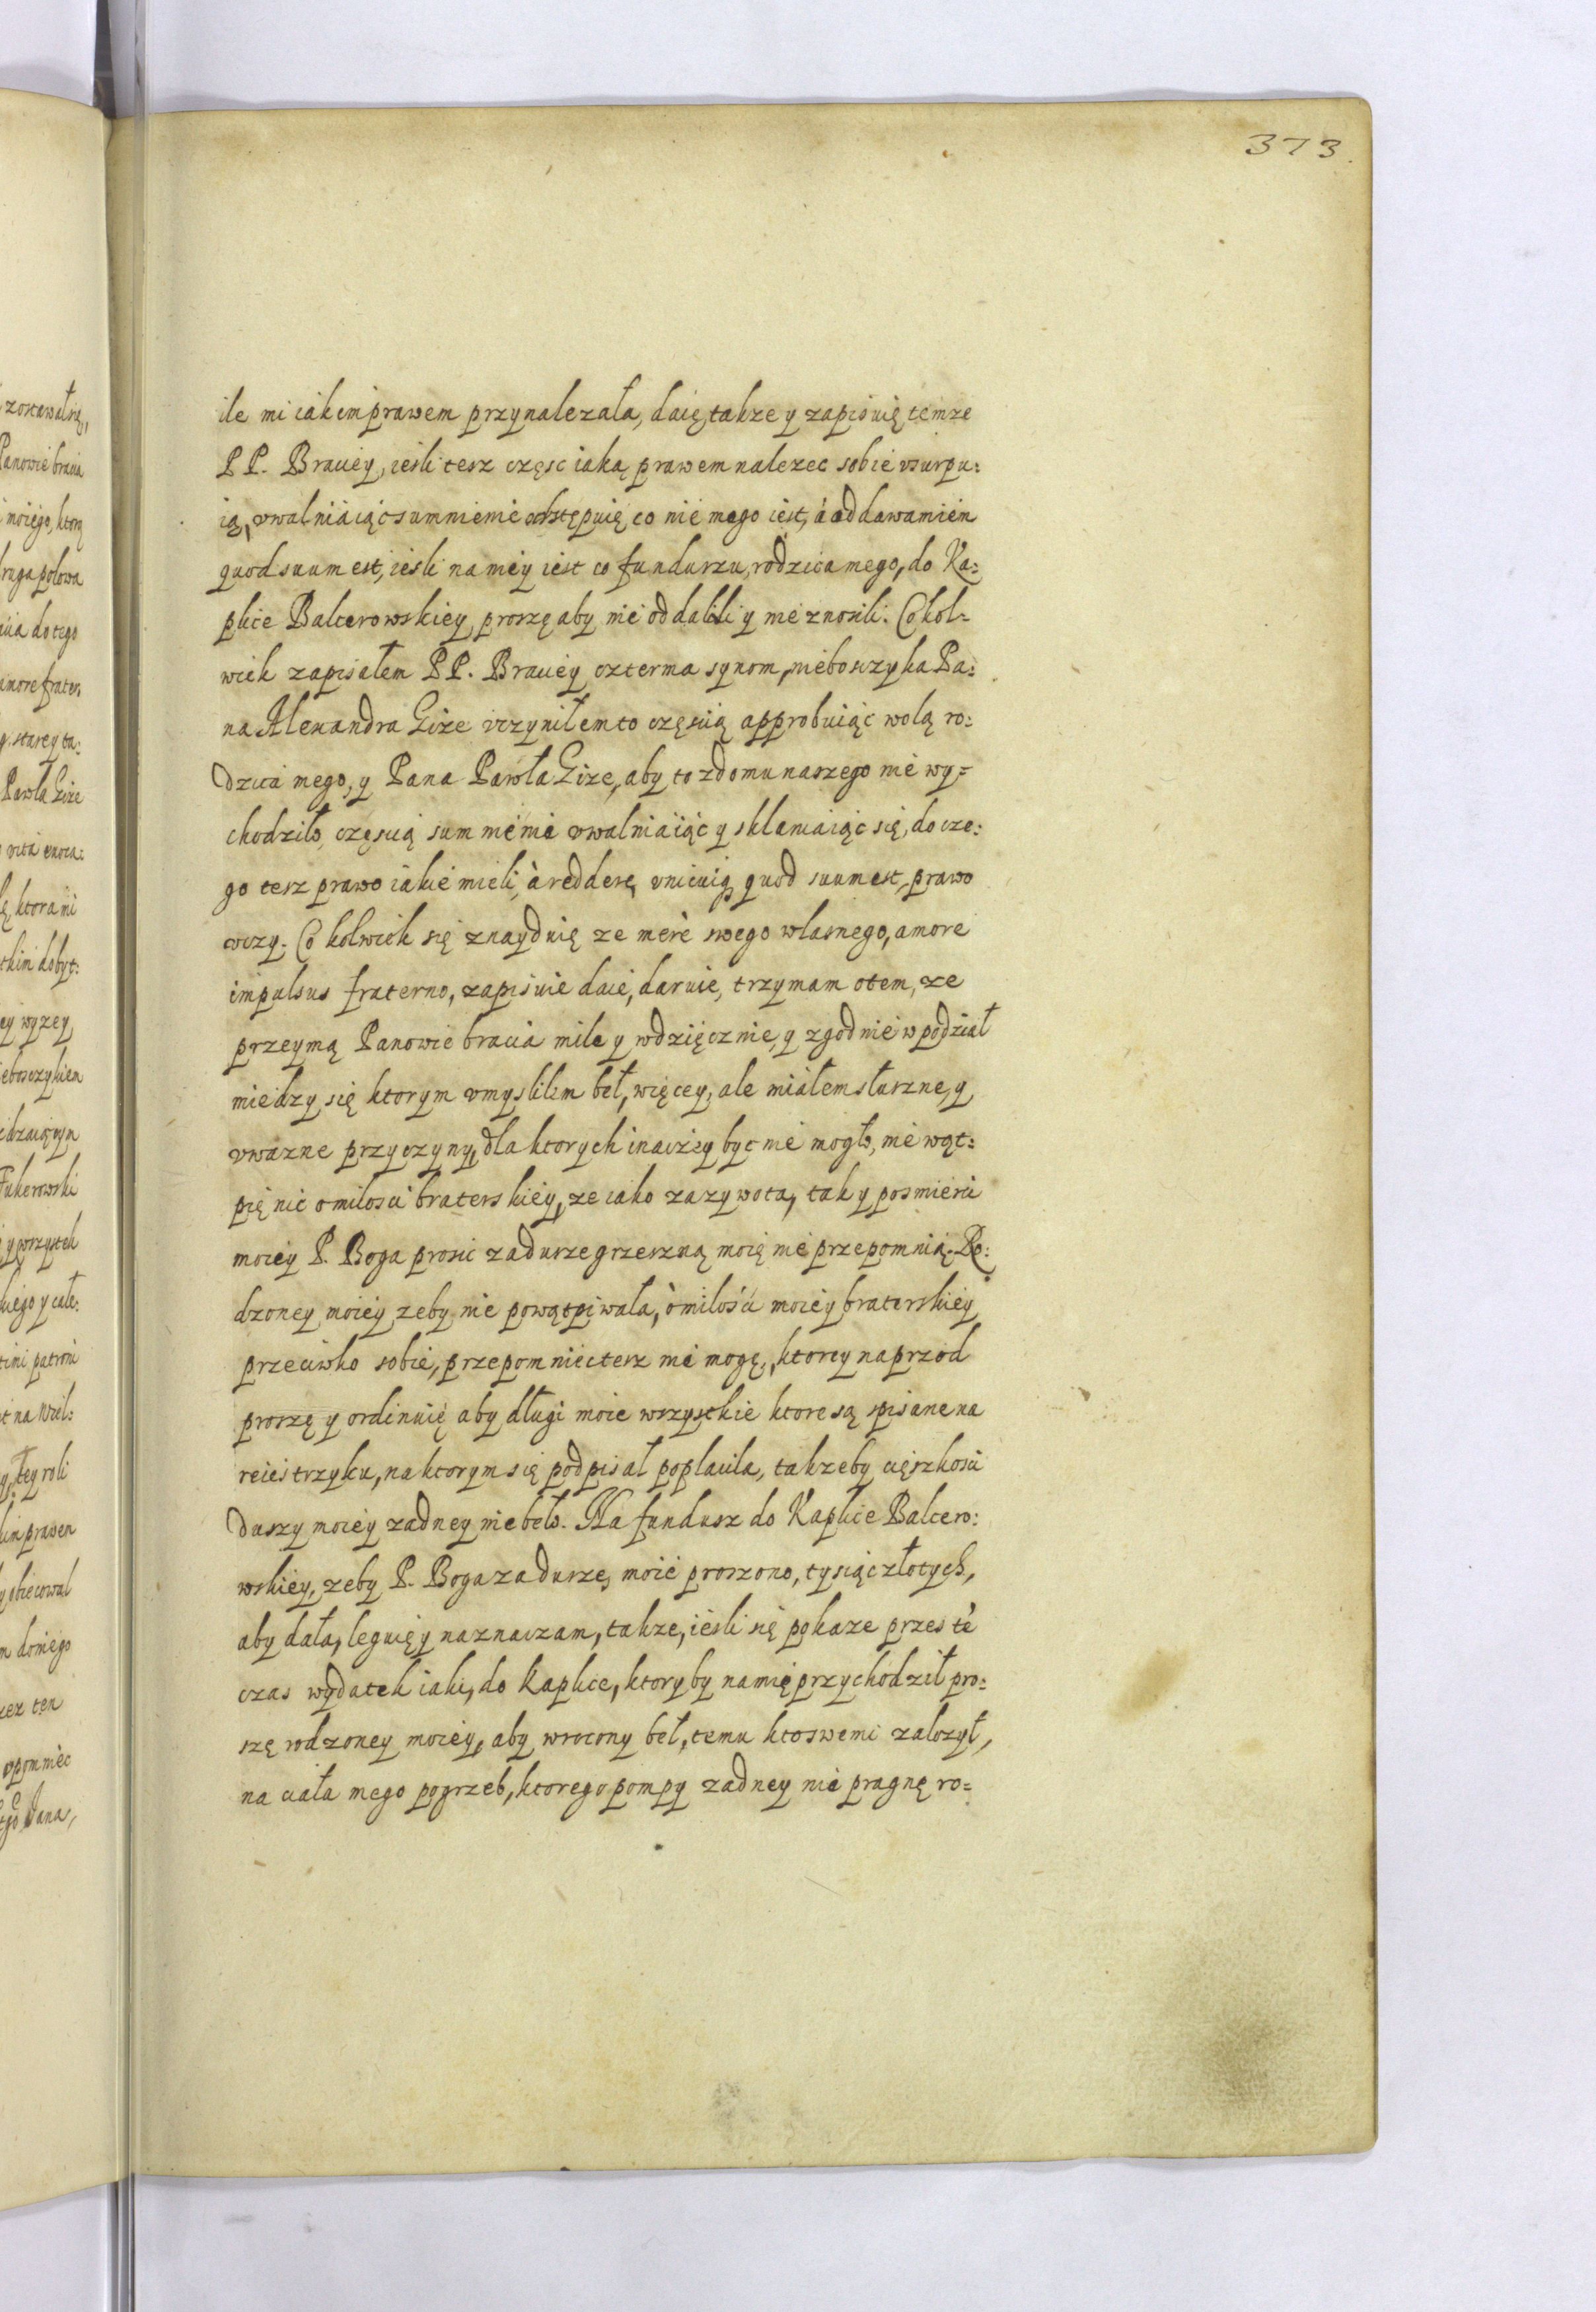 373.
ile mi iakim prawem przynalezała, daię także y zapisuię temze
PP. Braciey, iesli tesz częsc iaką prawem nalezec sobie vsurpu:
ią, vwalniaiąc sumnienie odstępuię co nie mego iest, á oddawam iem
quod suum est, iesli na mey iest co fundurzu, rodzica mego, do Ka:
plice Balcerowskiey, proszę aby nie oddalili y nie znosili. Cokol-
wiek zapisałem PP. Braciey czterma synom, nieboszyka Pa:
na Alexandra Gize vczyniłem to częscią approbuiąc wolą ro:
dzica mego, y Pana Pawła Gize, aby to z domu naszego nie wy=
chodziło, częscią summienie vwalniaiąc y skłaniaiąc się, do cze:
go tesz prawo iakie mieli, à reddere vnicuiq quod suum est, prawo
vczy. Cokolwiek się znayduię ze merè swego własnego, amore
impulsus fraterno, zapisuie daie, daruie, trzymam o tem, ze
przeymą Panowie bracia mile y wdzięcznie, y zgodnie w podział
miedzy się ktorym vmyslilem beł, więcey, ale miałem słuszne, y
vwazne przyczyny, dla ktorych inaczey byc nie mogło, nie wąt:
pię nic o milosci braterskiey, ze iako za zywota, tak y po smierci
moiey P. Boga prosic za dusze grzeszną moię nie przepomnią. Ro:
dzoney moiey zeby nie powątpiwała, ò milosci moiey braterskiey
przeciwko sobie, przepomniec tesz nie mogę, ktorey naprzod
proszę y ordinuię aby długi moie wszystkie ktore są spisane na
reiestrzyku, na ktorym się podpisał popłacila, tak zeby cięszkosci
duszy moiey zadney nie beło. Na fundusz do Kaplice Balcero:
wskiey, zeby P. Boga za dusze moie proszono, tysiąc złotych,
aby dała, leguię y naznaczam, takze, iesli się pokaze przes te
czas wydatek iaki, do kaplice, ktoryby na mię przychodził pro:
szę rodzoney moiey, aby wrocony beł, temu kto swemi załozył,
na ciała mego pogrzeb, ktorego pompy zadney nie pragnę ro=